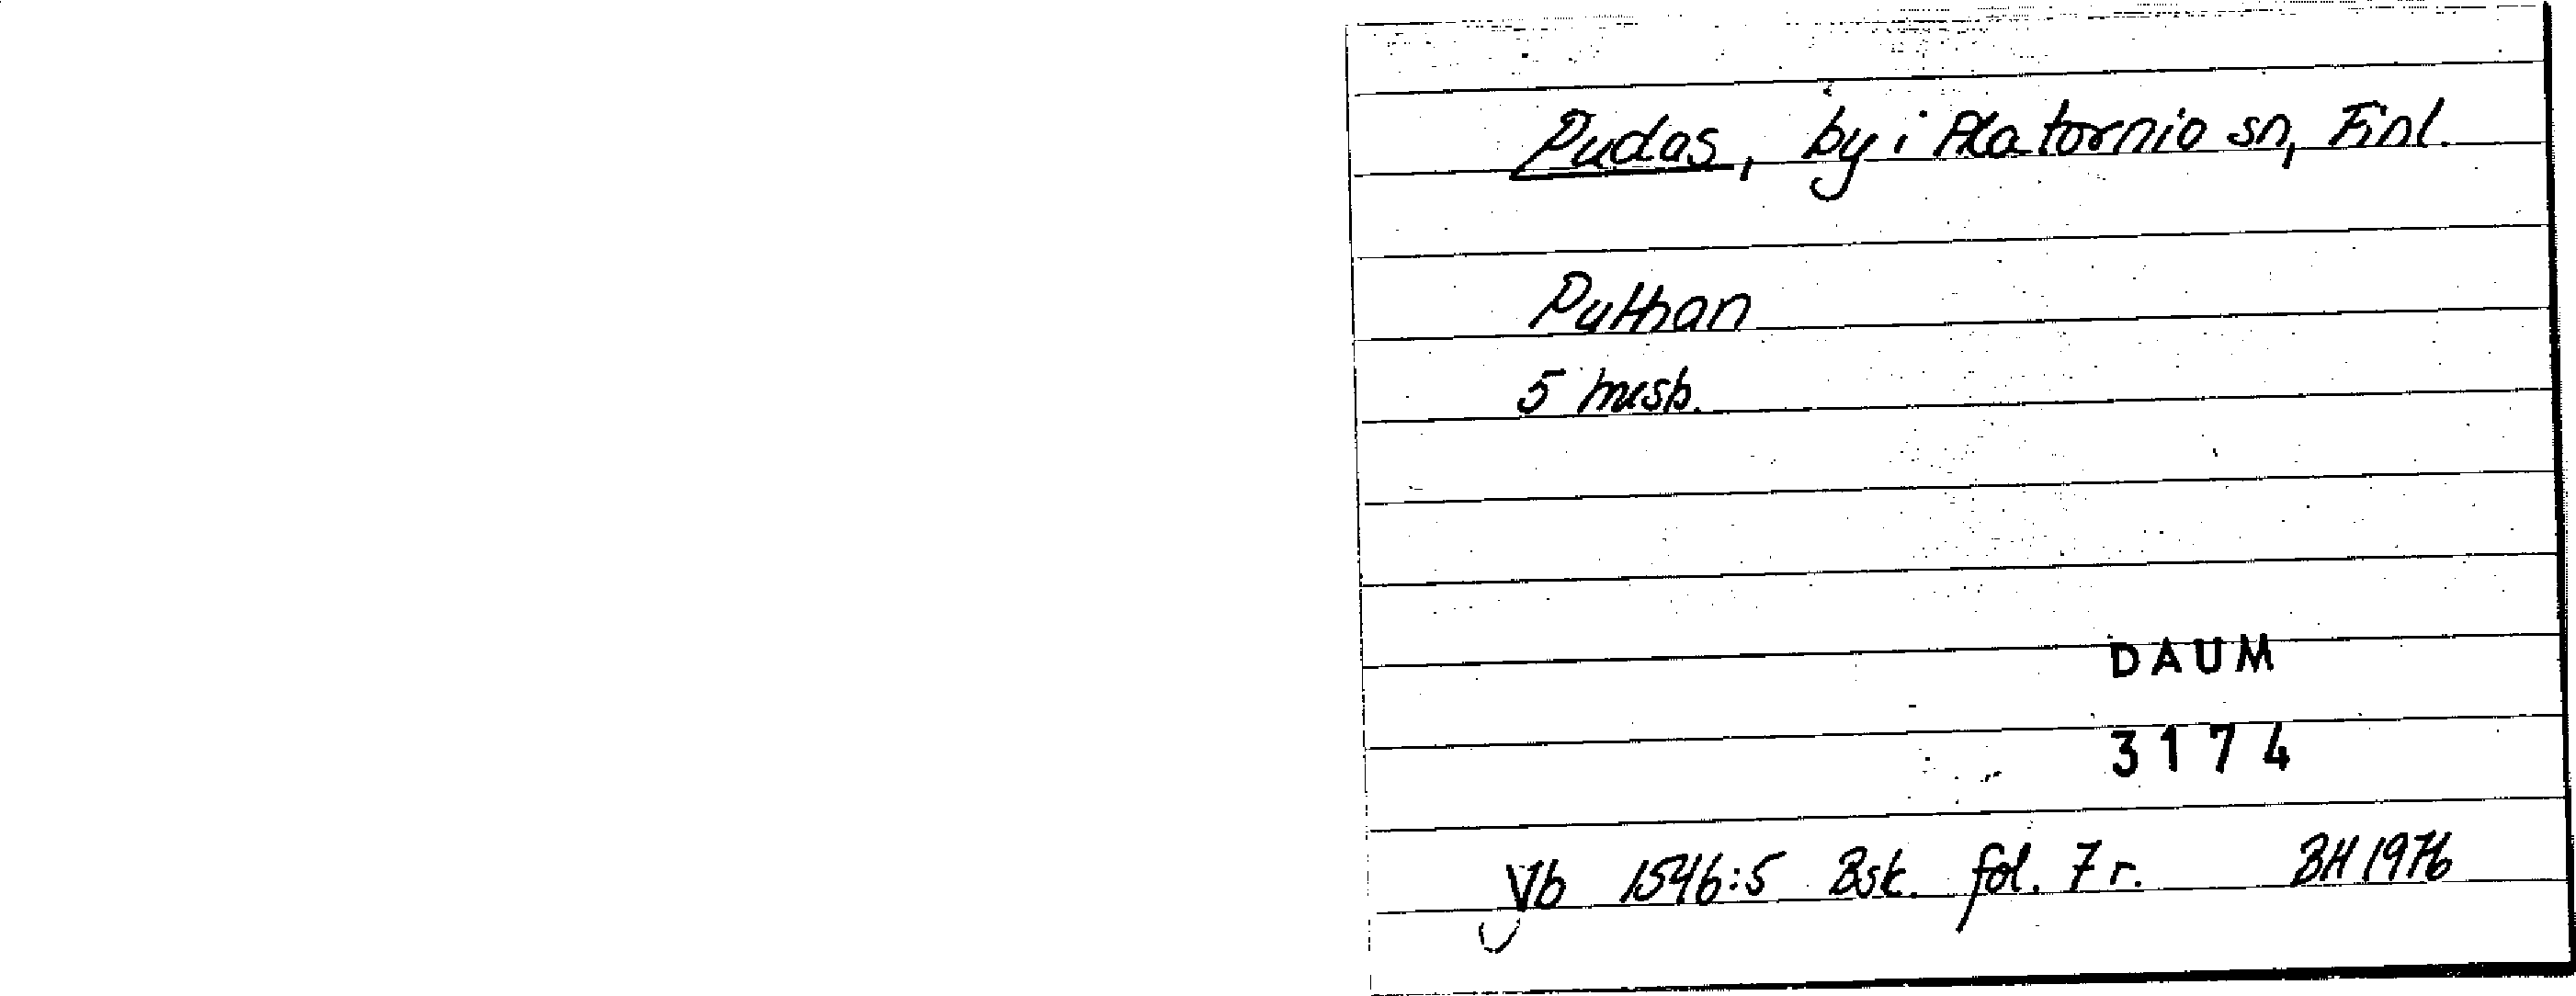 Pudas, by i Alatornio sn, Finl.
Putthan
5 mısb.
DAUM
3174
Vb 1546:5 Bsk. fol. 7 r. BH 1976